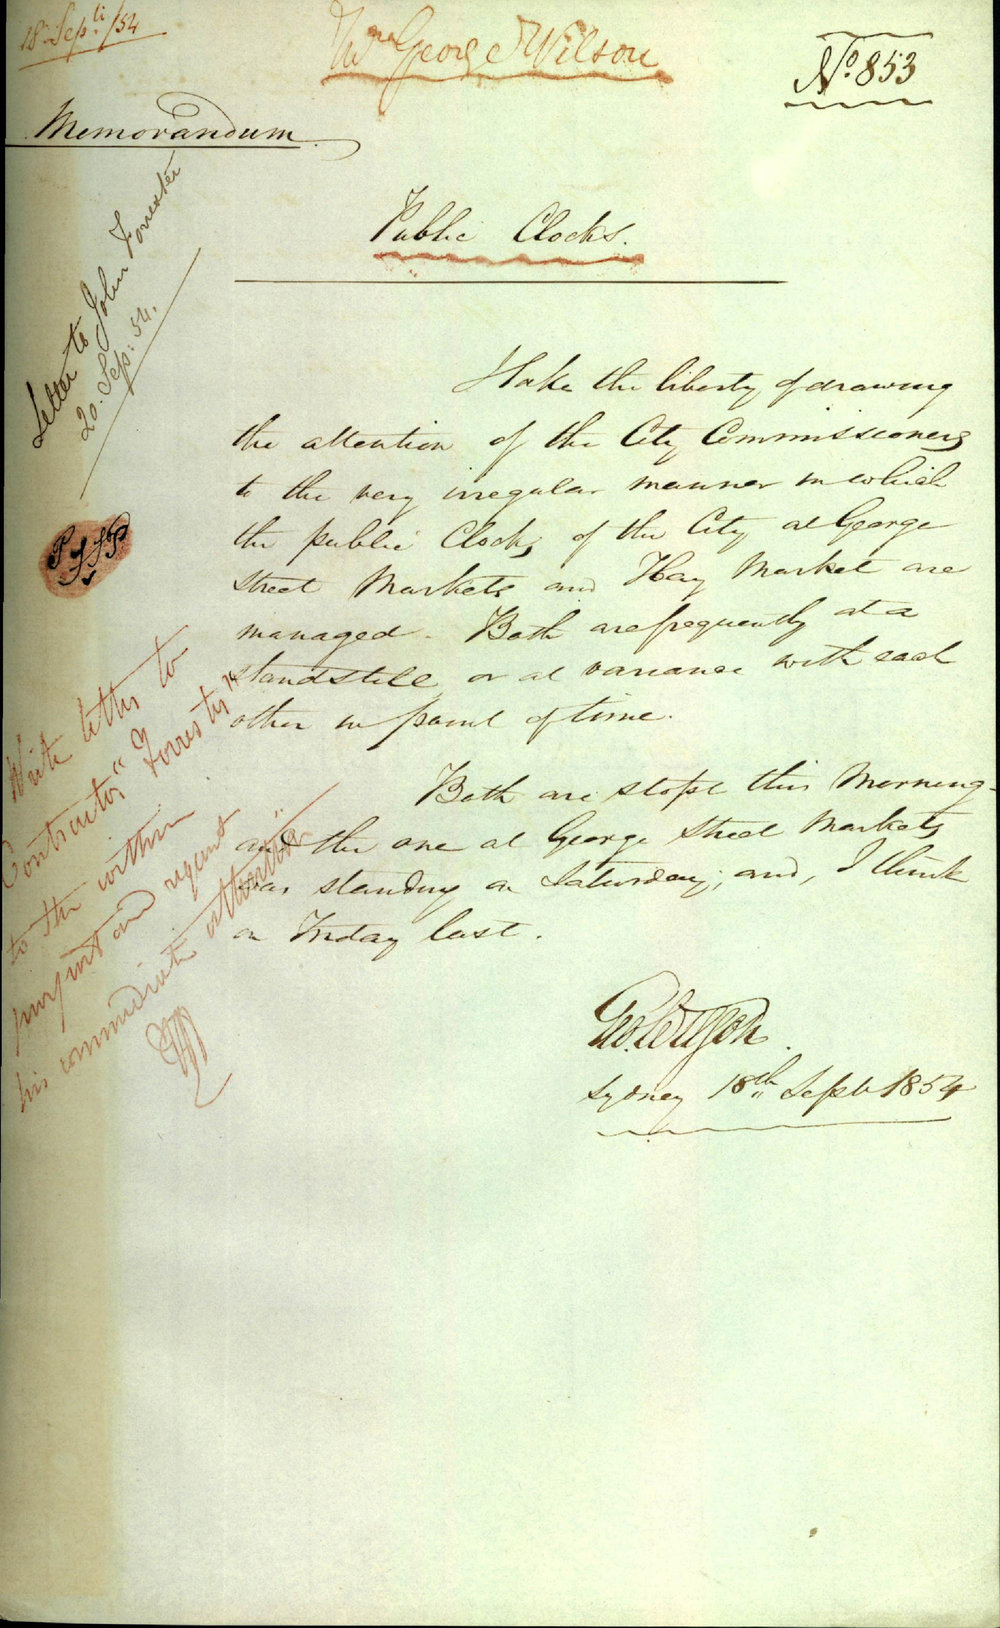 18 Septr /54
George Wilson
No. 853
Memorandum
Public Clocks.
Letter to John Forrester
20. Sep: 54.
I take the liberty of drawing
the attention of the City Commissioners
to the very irregular manner in which
the public Clocks of the City at George
Street Markets and Hay Market are
managed. Both are frequently at a
standstill or at variance with each
other in point of time.
Both are stopt this Morning
and the one at George Street Markets
was standing on Saturday; and, I think
on Friday last.
Geo. Wilson.
Sydney 18th Septr 1854
Write letter to
Contractor "Forrester"
to the within
purport and request
his immediate attention